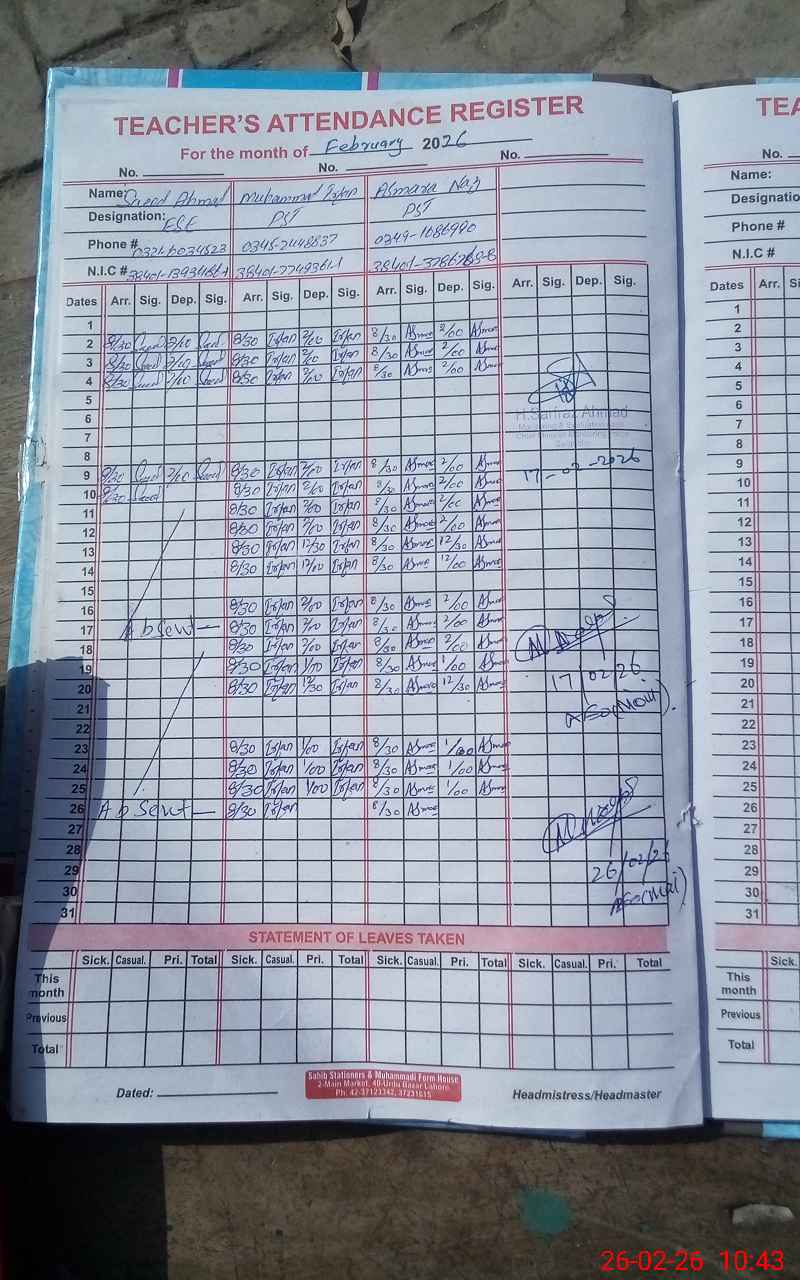 TEACHER'S ATTENDANCE REGISTER
For the month of February 2026
No. No. No.
Name: Saeed Ahmad Muhammad Irfan Asmara Naz
Designation: ESE PST PST
Phone # 0345-2448637 0349-1086990
N.I.C #
Dates Arr. Sig. Dep. Sig. Arr. Sig. Dep. Sig. Arr. Sig. Dep. Sig. Arr. Sig. Dep. Sig.
1
2 8/30 Saeed 2/00 Saeed 8/30 Irfan 2/00 Irfan 8/30 Asmara 2/00 Asmara
3 8/30 Saeed 2/00 Saeed 8/30 Irfan 2/00 Irfan 8/30 Asmara 2/00 Asmara
4 8/30 Saeed 2/00 Saeed 8/30 Irfan 2/00 Irfan 8/30 Asmara 2/00 Asmara
5
6 H.Sarfraz Ahmad
7
8
9 8/30 Saeed 2/00 Saeed 8/30 Irfan 2/00 Irfan 8/30 Asmara 2/00 Asmara 17-02-2026
10 8/30 Saeed 8/30 Irfan 2/00 Irfan 8/30 Asmara 2/00 Asmara
11 8/30 Irfan 2/00 Irfan 8/30 Asmara 2/00 Asmara
12 8/30 Irfan 2/00 Irfan 8/30 Asmara 2/00 Asmara
13 8/30 Irfan 12/30 Irfan 8/30 Asmara 12/30 Asmara
14 8/30 Irfan 12/00 Irfan 8/30 Asmara 12/00 Asmara
15
16 8/30 Irfan 2/00 Irfan 8/30 Asmara 2/00 Asmara
17 Absent 8/30 Irfan 2/00 Irfan 8/30 Asmara 2/00 Asmara
18 8/30 Irfan 2/00 Irfan 8/30 Asmara 2/00 Asmara
19 8/30 Irfan 1/00 Irfan 8/30 Asmara 1/00 Asmara
20 8/30 Irfan 12/30 Irfan 8/30 Asmara 12/30 Asmara 17/02/26
21
22
23 8/30 Irfan 1/00 Irfan 8/30 Asmara 1/00 Asmara
24 8/30 Irfan 1/00 Irfan 8/30 Asmara 1/00 Asmara
25 8/30 Irfan 1/00 Irfan 8/30 Asmara 1/00 Asmara
26 Absent 8/30 Irfan 8/30 Asmara
27
28
29 26/02/26
30
31
STATEMENT OF LEAVES TAKEN
Sick. Casual. Pri. Total Sick. Casual. Pri. Total Sick. Casual. Pri. Total Sick. Casual. Pri. Total
This month
Previous
Total
Sahib Stationers & Muhammadi Form House
2-Main Market, 40-Urdu Bazar Lahore.
Ph: 42-37123342, 37231615
Dated: Headmistress/Headmaster
TEA
No.
Name:
Designatio
Phone #
N.I.C #
Dates Arr. S
1
2
3
4
5
6
7
8
9
10
11
12
13
14
15
16
17
18
19
20
21
22
23
24
25
26
27
28
29
30
31
Sick.
This month
Previous
Total
26-02-26 10:43